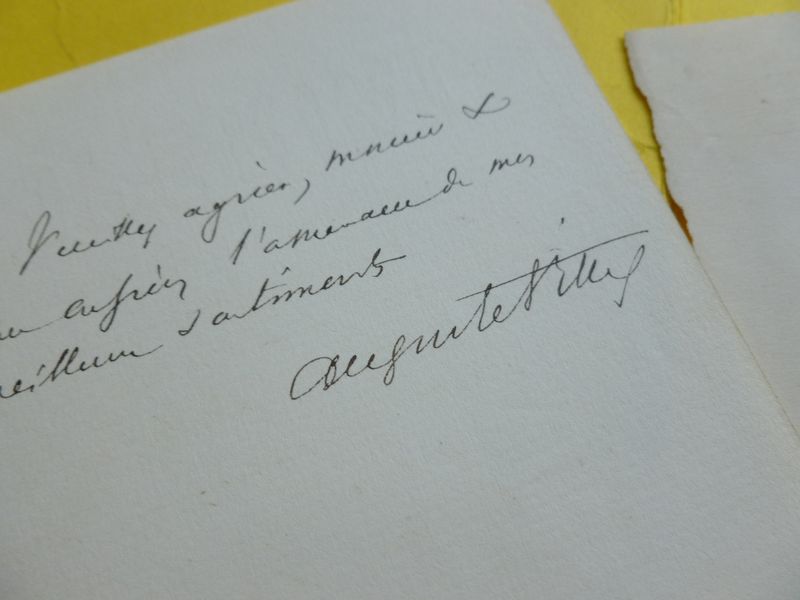 Veuillez agréer, monsieur &
confrère, l'assurance de mes
meilleurs sentiments
Auguste Vitu